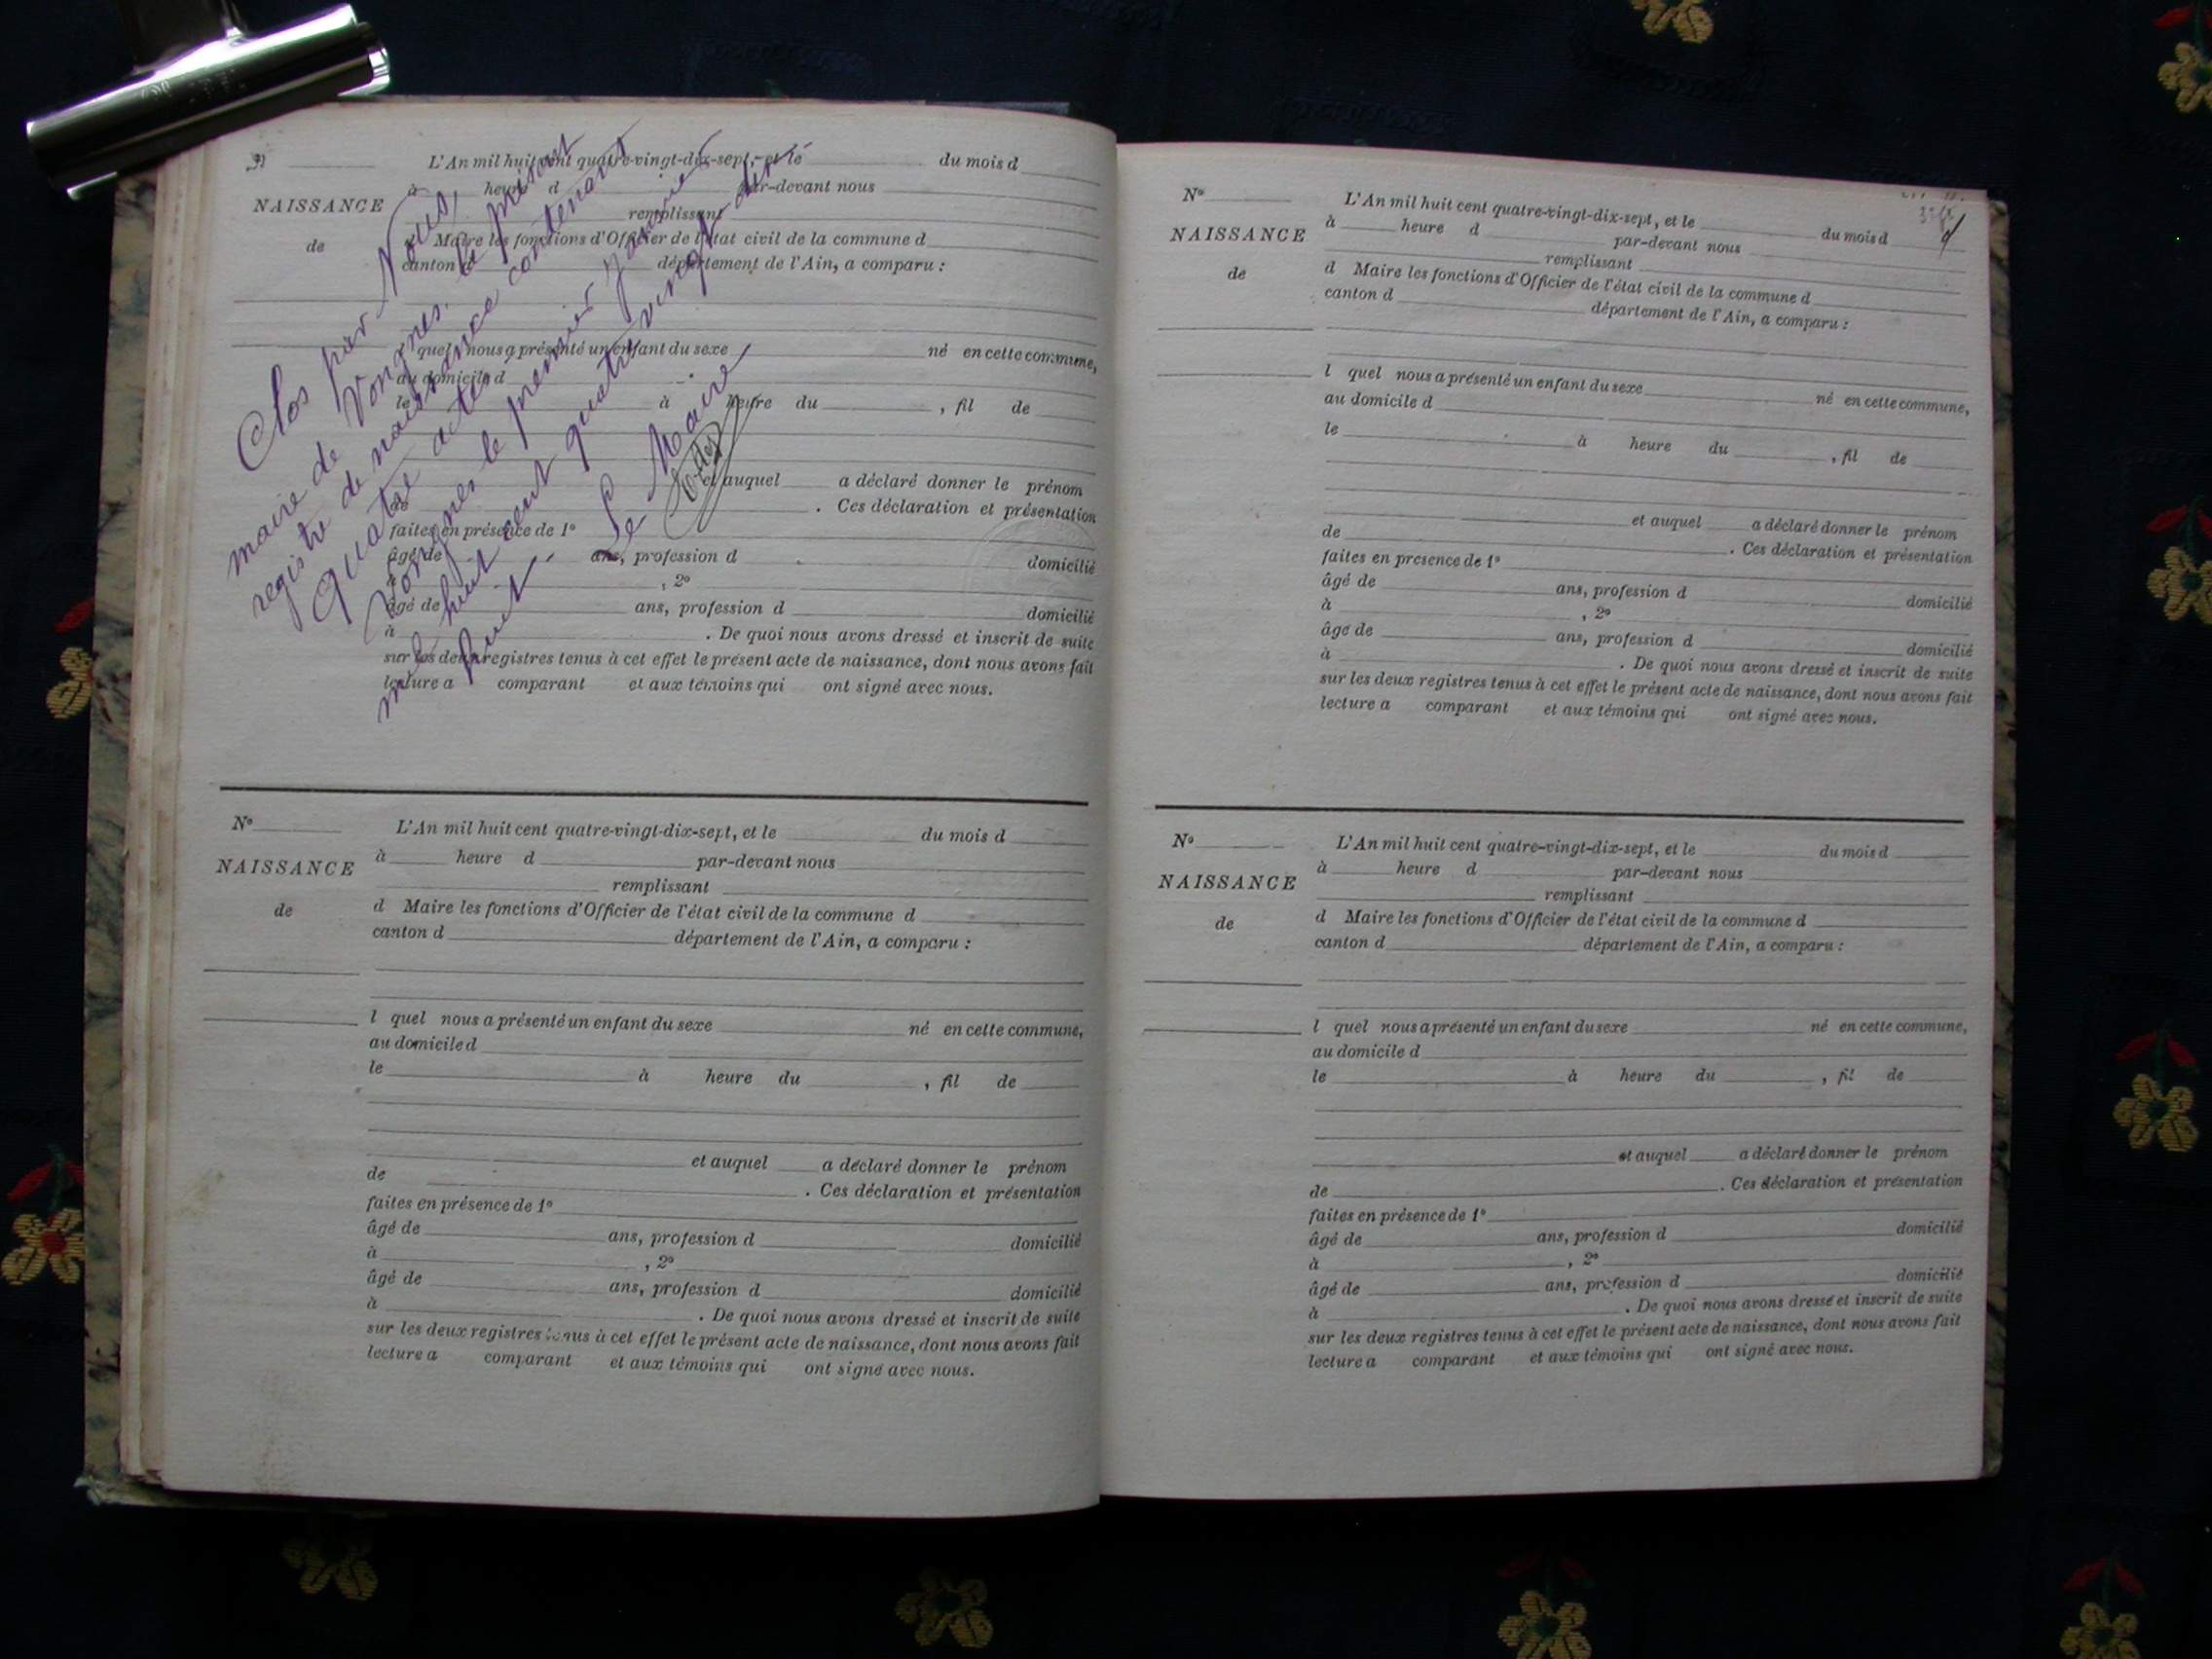 Clos par Nous,
maire de Vongnes, le présent
registre de naissance contenant
quatre actes
Vongnes le premier Janvier
mil huit cent quatre vingt dix
huit.
Le Maire
L'An mil huit cent quatre-vingt-dix-sept, et le du mois d
à heure d par-devant nous
NAISSANCE
remplissant
de
d Maire les fonctions d'Officier de l'état civil de la commune d
canton d département de l'Ain, a comparu :
l quel nous a présenté un enfant du sexe né en cette commune,
au domicile d
le à heure du , fil de
et auquel a déclaré donner le prénom
de . Ces déclaration et présentation
faites en présence de 1°
âgé de ans, profession d domicilié
à , 2°
âgé de ans, profession d domicilié
à . De quoi nous avons dressé et inscrit de suite
sur les deux registres tenus à cet effet le présent acte de naissance, dont nous avons fait
lecture a comparant et aux témoins qui ont signé avec nous.
N° L'An mil huit cent quatre-vingt-dix-sept, et le du mois d
à heure d par-devant nous
NAISSANCE
remplissant
de
d Maire les fonctions d'Officier de l'état civil de la commune d
canton d département de l'Ain, a comparu :
l quel nous a présenté un enfant du sexe né en cette commune,
au domicile d
le à heure du , fil de
et auquel a déclaré donner le prénom
de . Ces déclaration et présentation
faites en présence de 1°
âgé de ans, profession d domicilié
à , 2°
âgé de ans, profession d domicilié
à . De quoi nous avons dressé et inscrit de suite
sur les deux registres tenus à cet effet le présent acte de naissance, dont nous avons fait
lecture a comparant et aux témoins qui ont signé avec nous.
N° L'An mil huit cent quatre-vingt-dix-sept, et le du mois d
à heure d par-devant nous
NAISSANCE
remplissant
de
d Maire les fonctions d'Officier de l'état civil de la commune d
canton d département de l'Ain, a comparu :
l quel nous a présenté un enfant du sexe né en cette commune,
au domicile d
le à heure du , fil de
et auquel a déclaré donner le prénom
de . Ces déclaration et présentation
faites en presence de 1°
âgé de ans, profession d domicilié
à , 2°
âge de ans, profession d domicilié
à . De quoi nous avons dressé et inscrit de suite
sur les deux registres tenus à cet effet le présent acte de naissance, dont nous avons fait
lecture a comparant et aux témoins qui ont signé avec nous.
N° L'An mil huit cent quatre-vingt-dix-sept, et le du mois d
à heure d par-devant nous
NAISSANCE
remplissant
de
d Maire les fonctions d'Officier de l'état civil de la commune d
canton d département de l'Ain, a comparu :
l quel nous a présenté un enfant du sexe né en cette commune,
au domicile d
le à heure du , fil de
et auquel a déclaré donner le prénom
de . Ces déclaration et présentation
faites en présence de 1°
âgé de ans, profession d domicilié
à , 2°
âgé de ans, profession d domicilié
à . De quoi nous avons dressé et inscrit de suite
sur les deux registres tenus à cet effet le présent acte de naissance, dont nous avons fait
lecture a comparant et aux témoins qui ont signé avec nous.